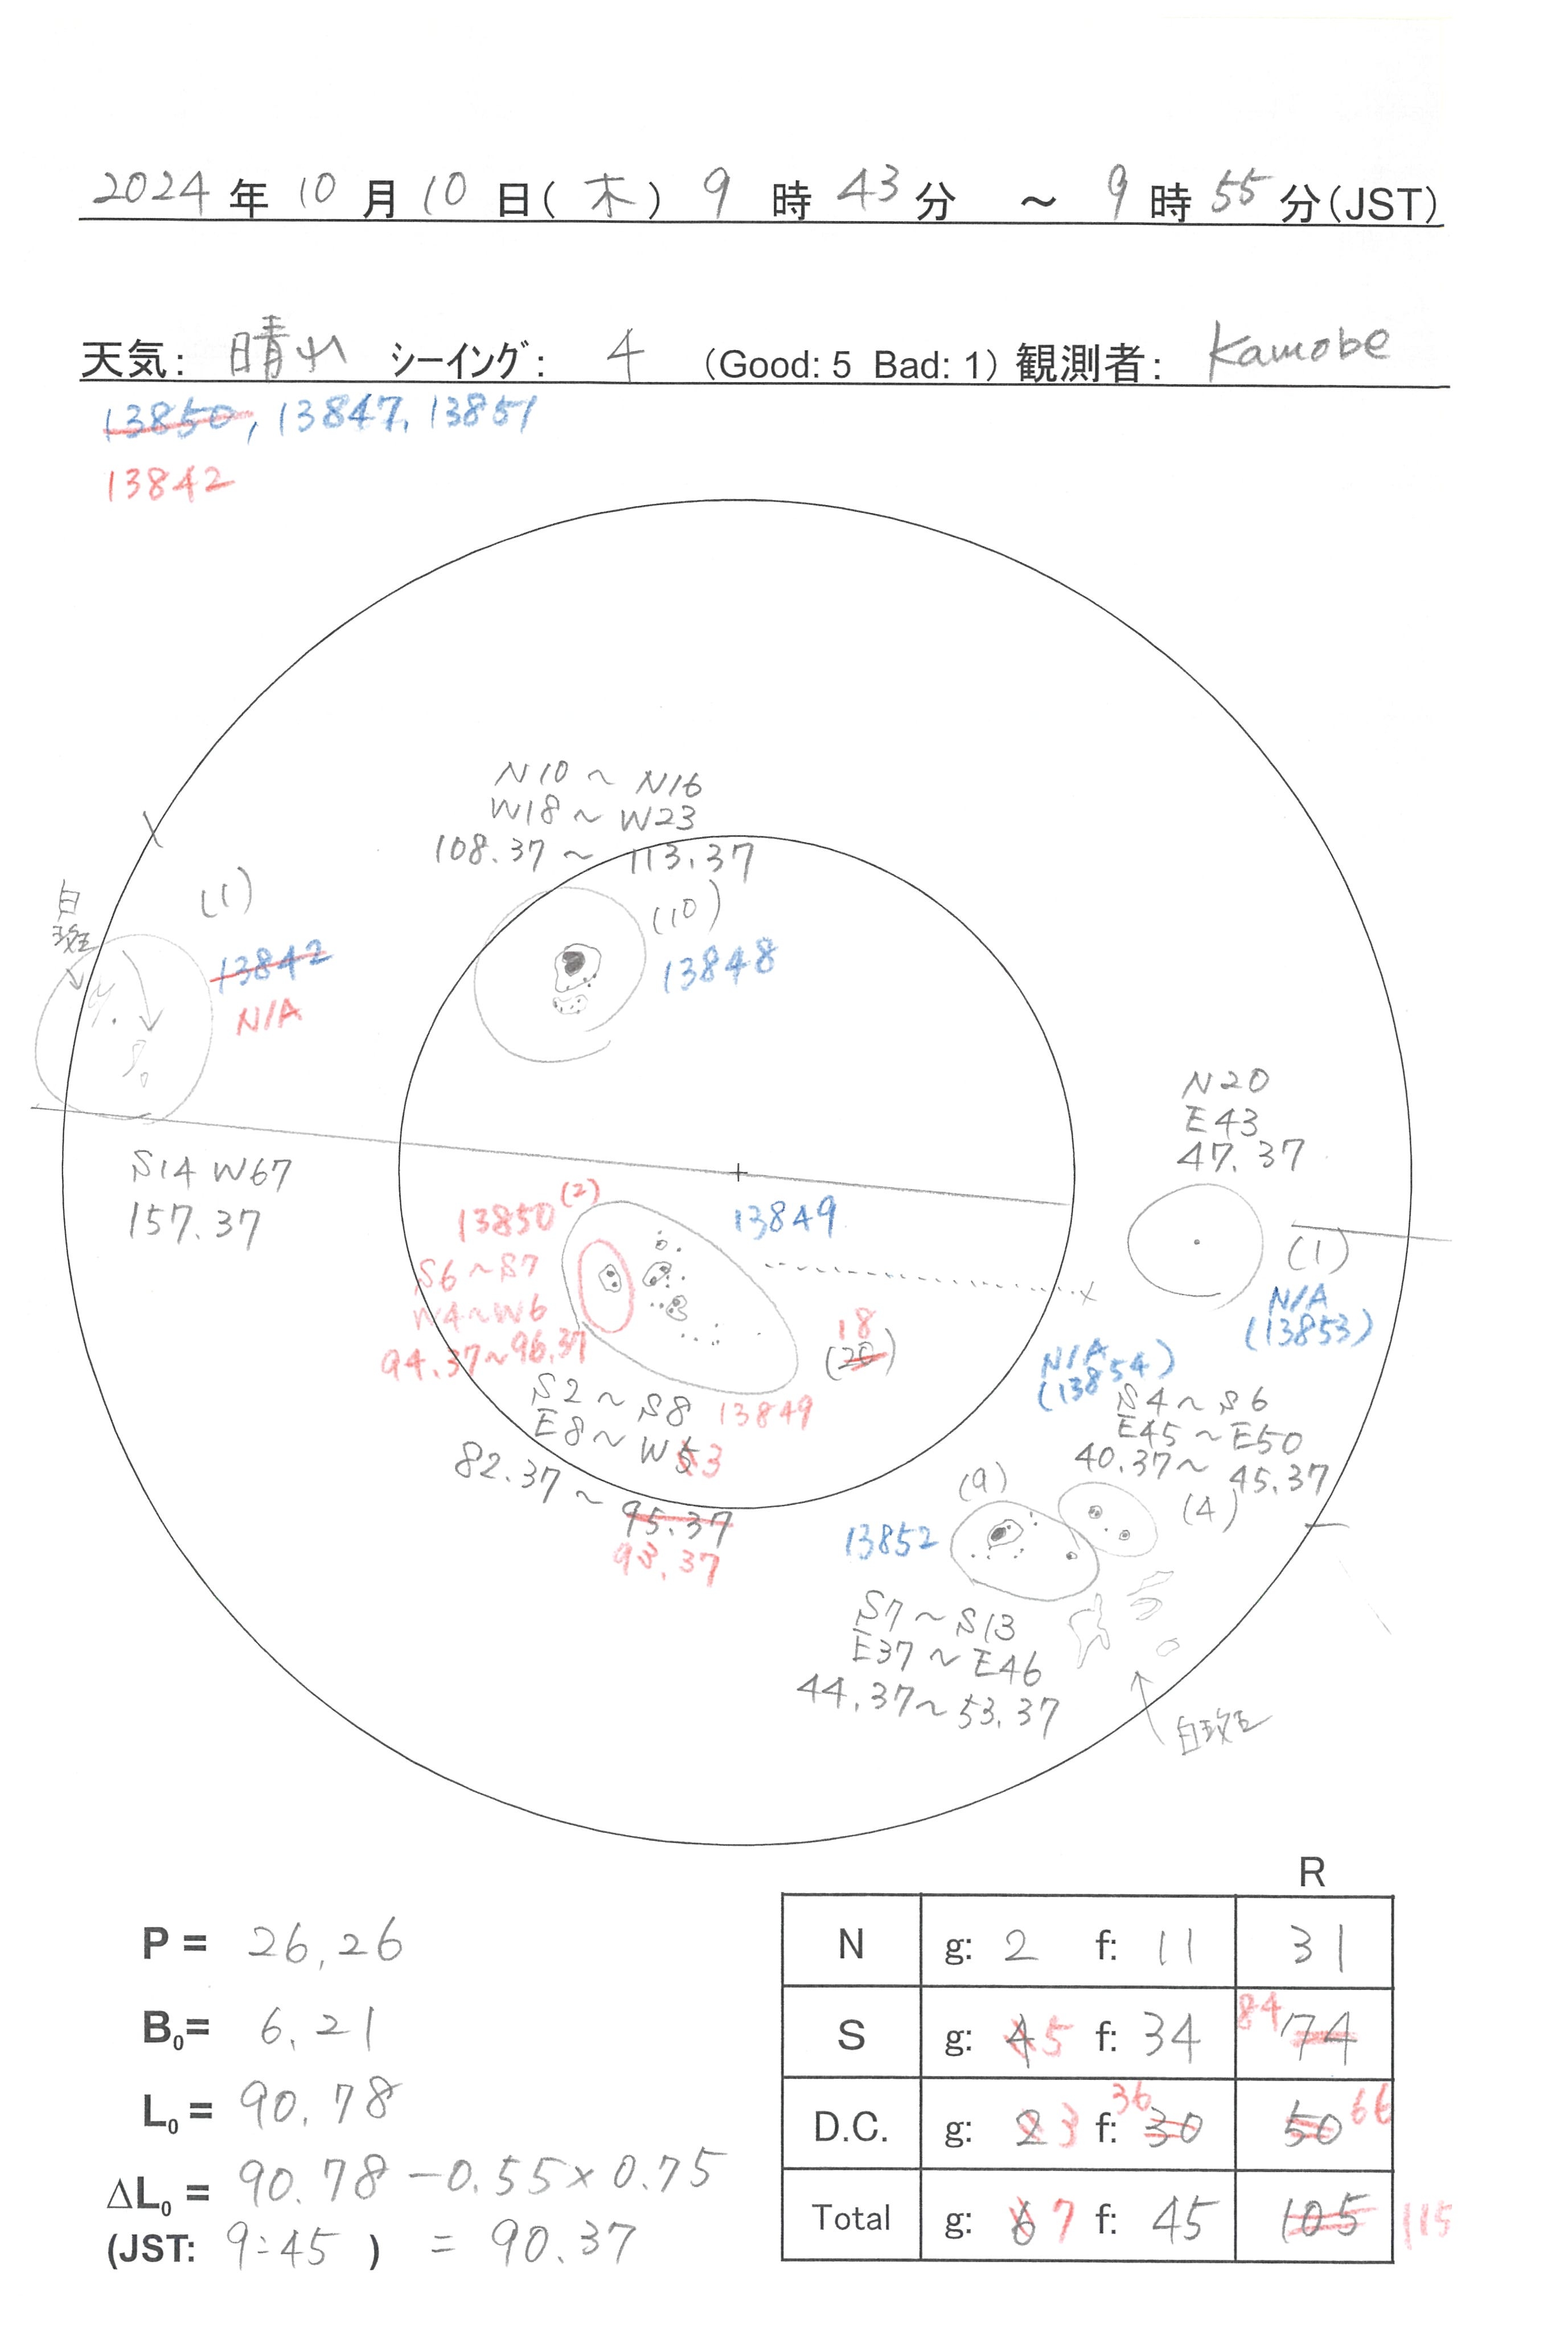 2024年10月10日(木) 9時43分 ～ 9時55分(JST)
天気: 晴れ シーイング: 4 (Good: 5 Bad: 1) 観測者: Kamobe
13850, 13847, 13851
13842
N10～N16
W18～W23
108.37～113.37
(10)
13848
白斑
(1)
13842
N/A
S14 W67
157.37
N20
E43
47.37
(1)
N/A
(13853)
13850 (2)
S6～S7
W4～W6
94.37～96.37
13849
18
(20)
S2～S8 13849
E8～W5 3
82.37～95.37
93.37
N/A
(13854)
S4～S6
E45～E50
40.37～45.37
(4)
(9)
13852
S7～S13
E37～E46
44.37～53.37
白斑
P = 26.26
B0= 6.21
L0 = 90.78
ΔL0 = 90.78-0.55×0.75
(JST: 9:45 ) = 90.37
R
N g: 2 f: 11 31
S g: 4 5 f: 34 84 74
D.C. g: 2 3 f: 36 30 50 66
Total g: 6 7 f: 45 105 115